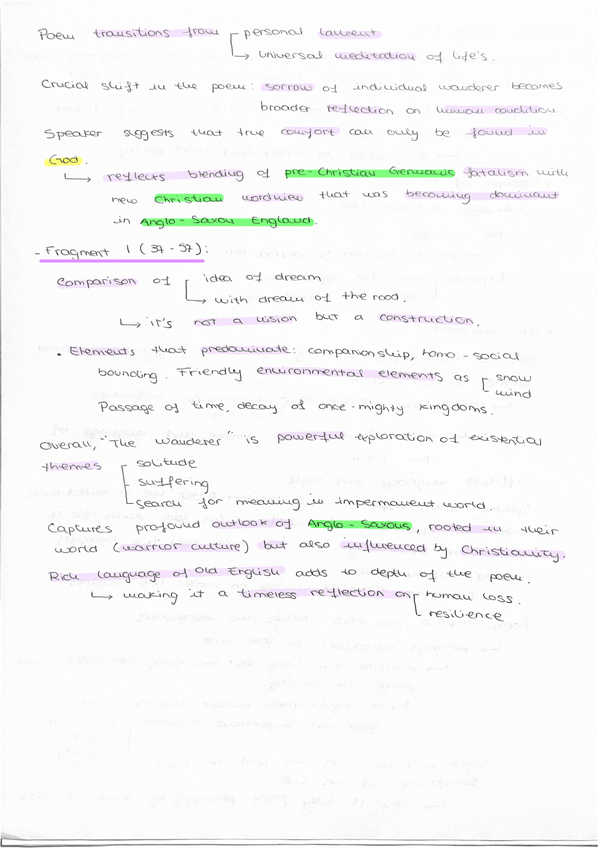 Poem transitions from personal lament
↳ universal meditation of life's.
Crucial shift in the poem: sorrow of individual wanderer becomes
broader reflection on human condition.
Speaker suggests that true comfort can only be found in
God.
↳ reflects blending of pre-Christian Germanic fatalism with
new Christian wordview that was becoming dominant
in Anglo-Saxon England.
- Fragment 1 (37-57):
Comparison of idea of dream
↳ with dream of the rood.
↳ it's not a vision but a construction.
• Elements that predominate: companionship, homo-social
bounding. Friendly environmental elements as snow
wind
Passage of time, decay of once-mighty kingdoms.
Overall, "The Wanderer" is powerful exploration of existential
themes solitude
suffering
search for meaning in impermanent world.
Captures profound outlook of Anglo-Saxons, rooted in their
world (warrior culture) but also influenced by Christianity.
Rich language of Old English adds to depth of the poem.
↳ making it a timeless reflection on human loss.
resilience